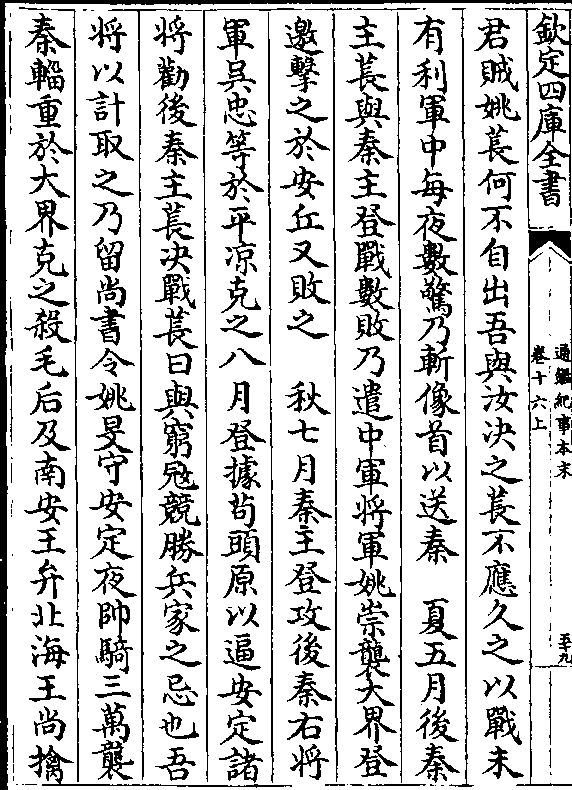 欽定四庫全書
通鑑紀事本末
卷十六上
五十九
君賊姚萇何不自出吾與汝决之萇不應久之以戰未
有利軍中每夜數驚乃斬像首以送秦　夏五月後秦
主萇與秦主登戰數敗乃遣中軍將軍姚崇襲大界登
邀擊之於安丘又敗之　秋七月秦主登攻後秦右將
軍吳忠等於平凉克之八月登據苟頭原以逼安定諸
將勸後秦主萇决戰萇曰與窮冦競勝兵家之忌也吾
將以計取之乃留尚書令姚旻守安定夜帥騎三萬襲
秦輜重於大界克之殺毛后及南安王弁北海王尚擒